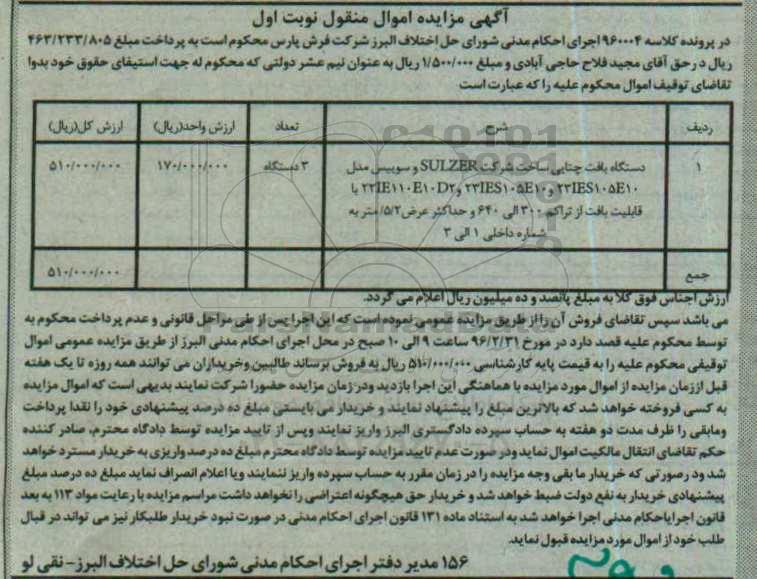 آگهی مزایده اموال منقول نوبت اول
در پرونده کلاسه ۹۶۰۰۰۴ اجرای احکام مدنی شورای حل اختلاف البرز شرکت فرش پارس محکوم است به پرداخت مبلغ ۴۶۳/۲۳۳/۸۰۵
ریال در حق آقای مجید فلاح حاجی آبادی و مبلغ ۱/۵۰۰/۰۰۰ ریال به عنوان نیم عشر دولتی که محکوم له جهت استیفای حقوق خود بدوا
تقاضای توقیف اموال محکوم علیه را که عبارت است
ردیف شرح تعداد ارزش واحد(ریال) ارزش کل(ریال)
۱ دستگاه بافت چتایی ساخت شرکت SULZER و سوییس مدل ۳ دستگاه ۱۷۰/۰۰۰/۰۰۰ ۵۱۰/۰۰۰/۰۰۰
۲۳IES۱۰۵E۱۰ و ۲۳IES۱۰۵E۱۰ و ۲۳IE۱۱۰E۱۰D۲ با
قابلیت بافت از تراکم ۳۰۰ الی ۶۴۰ و حداکثر عرض ۵/۲ متر به
شماره داخلی ۱ الی ۳
جمع ۵۱۰/۰۰۰/۰۰۰
ارزش اجناس فوق کلا به مبلغ پانصد و ده میلیون ریال اعلام می گردد.
می باشد سپس تقاضای فروش آن را از طریق مزایده عمومی نموده است که این اجرا پس از طی مراحل قانونی و عدم پرداخت محکوم به
توسط محکوم علیه قصد دارد در مورخ ۹۶/۲/۳۱ ساعت ۹ الی ۱۰ صبح در محل اجرای احکام مدنی البرز از طریق مزایده عمومی اموال
توقیفی محکوم علیه را به قیمت پایه کارشناسی ۵۱۰/۰۰۰/۰۰۰ ریال به فروش برساند طالبین وخریداران می توانند همه روزه تا یک هفته
قبل اززمان مزایده از اموال مورد مزایده با هماهنگی این اجرا بازدید ودر زمان مزایده حضورا شرکت نمایند بدیهی است که اموال مزایده
به کسی فروخته خواهد شد که بالاترین مبلغ را پیشنهاد نمایند و خریدار می بایستی مبلغ ده درصد پیشنهادی خود را نقدا پرداخت
ومابقی را ظرف مدت دو هفته به حساب سپرده دادگستری البرز واریز نمایند وپس از تایید مزایده توسط دادگاه محترم، صادر کننده
حکم تقاضای انتقال مالکیت اموال نماید ودر صورت عدم تایید مزایده توسط دادگاه محترم مبلغ ده درصد واریزی به خریدار مسترد خواهد
شد ود رصورتی که خریدار ما بقی وجه مزایده را در زمان مقرر به حساب سپرده واریز ننمایند ویا اعلام انصراف نماید مبلغ ده درصد مبلغ
پیشنهادی خریدار به نفع دولت ضبط خواهد شد و خریدار حق هیچگونه اعتراضی را نخواهد داشت مراسم مزایده با رعایت مواد ۱۱۳ به بعد
قانون اجرایاحکام مدنی اجرا خواهد شد به استناد ماده ۱۳۱ قانون اجرای احکام مدنی در صورت نبود خریدار طلبکار نیز می تواند در قبال
طلب خود از اموال مورد مزایده قبول نماید.
۱۵۶ مدیر دفتر اجرای احکام مدنی شورای حل اختلاف البرز- نقی لو